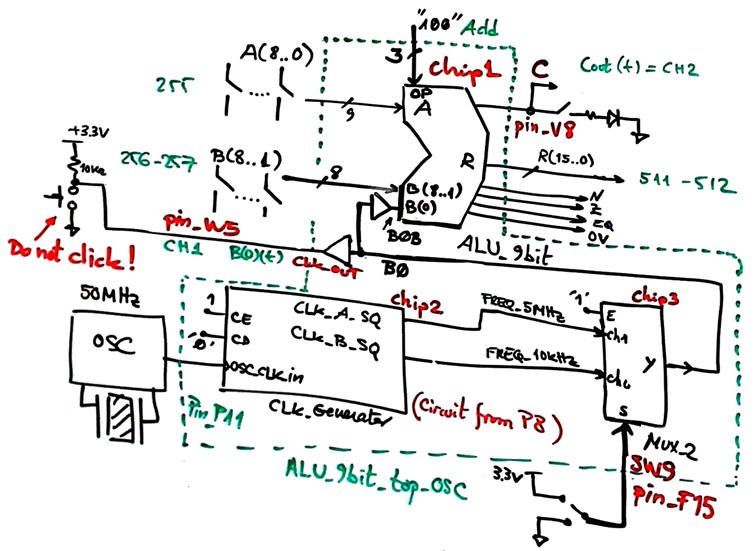 "100" Add
3
A(8..0)
chip1
C
Cout(t) = CH2
255
9
OP
A
pin_V8
+3.3V
10KΩ
256-257
B(8..1)
8
R
R(15..0)
511-512
B(8..1)
B(0)
N
Z
EQ
OV
B0B
ALU_9bit
Do not click!
pin_W5
CH1
B(0)(t)
CLK_OUT
B0
50MHz
OSC
1
CE
"0"
CD
OSC_CLK_in
CLK_A_SQ
CLK_B_SQ
chip2
FREQ_5MHz
FREQ_10kHz
"1"
chip3
E
Ch1
Ch0
Y
S
Pin_P11
CLK_Generator
(Circuit from P8)
MUX_2
SW9
pin_F15
3.3V
ALU_9bit_top_OSC